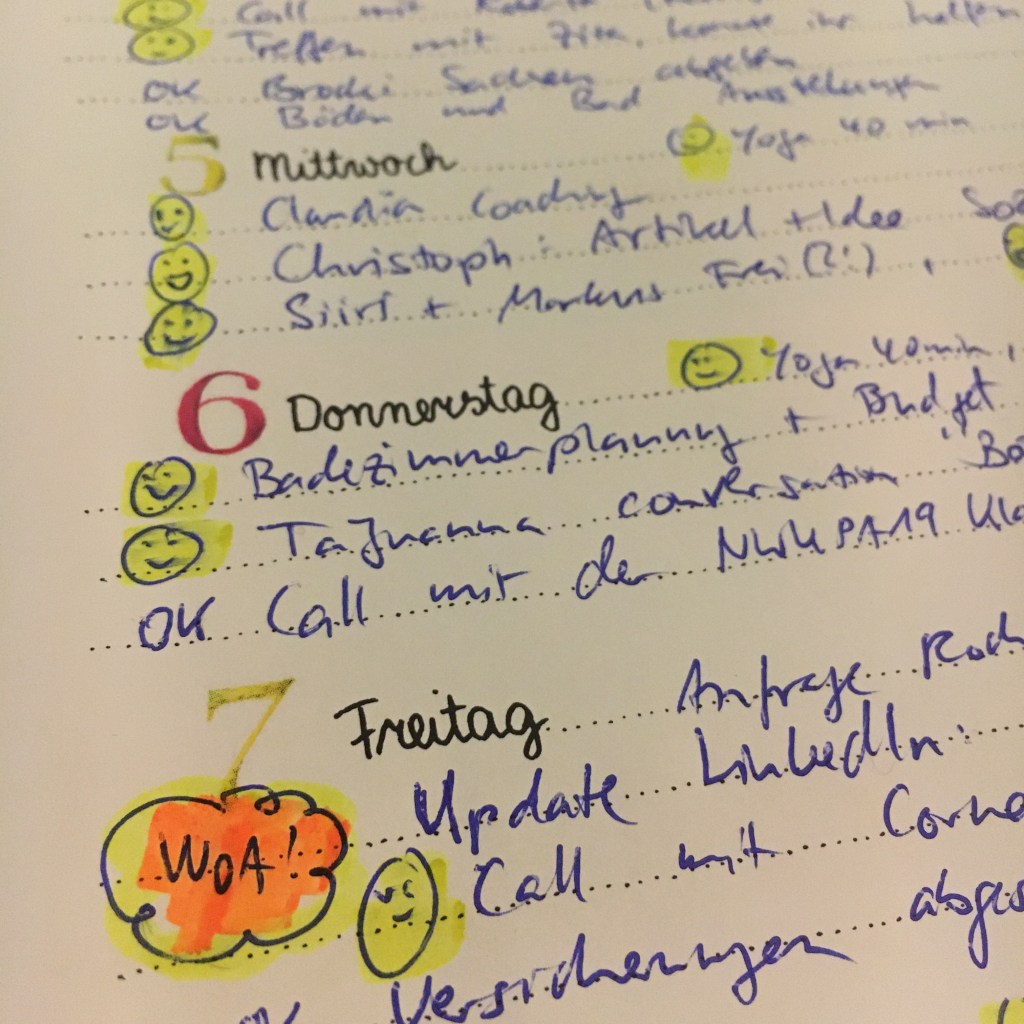 Call mit
Treffen mit Zita, konnte ihr helfen
OK Brocki Sachen abgeben
OK Böden und Bad Ausstellungen
5 Mittwoch Yoga 40 min
Claudia Coaching
Christoph: Artikel + Idee
Siiri + Markus Frei (?!),
6 Donnerstag Yoga 40 min,
Badezimmerplanung + Budget
TaJuanna conversation
OK Call mit der NWU PA19
7 Freitag Anfrage
Update LinkedIn:
WOA! Call mit
OK Versicherungen